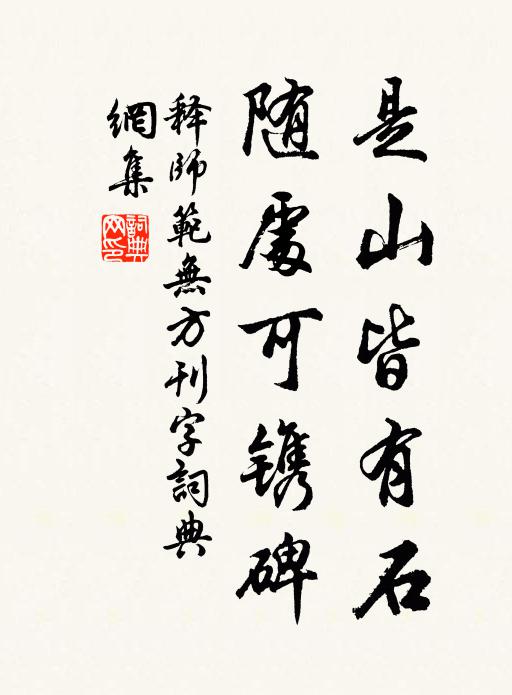 是山皆有石
随處可镌碑
释師範無方刊字詞典
網集
詞典
网印